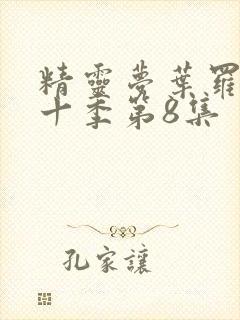 精靈夢葉羅
十季第8集
孔家讓